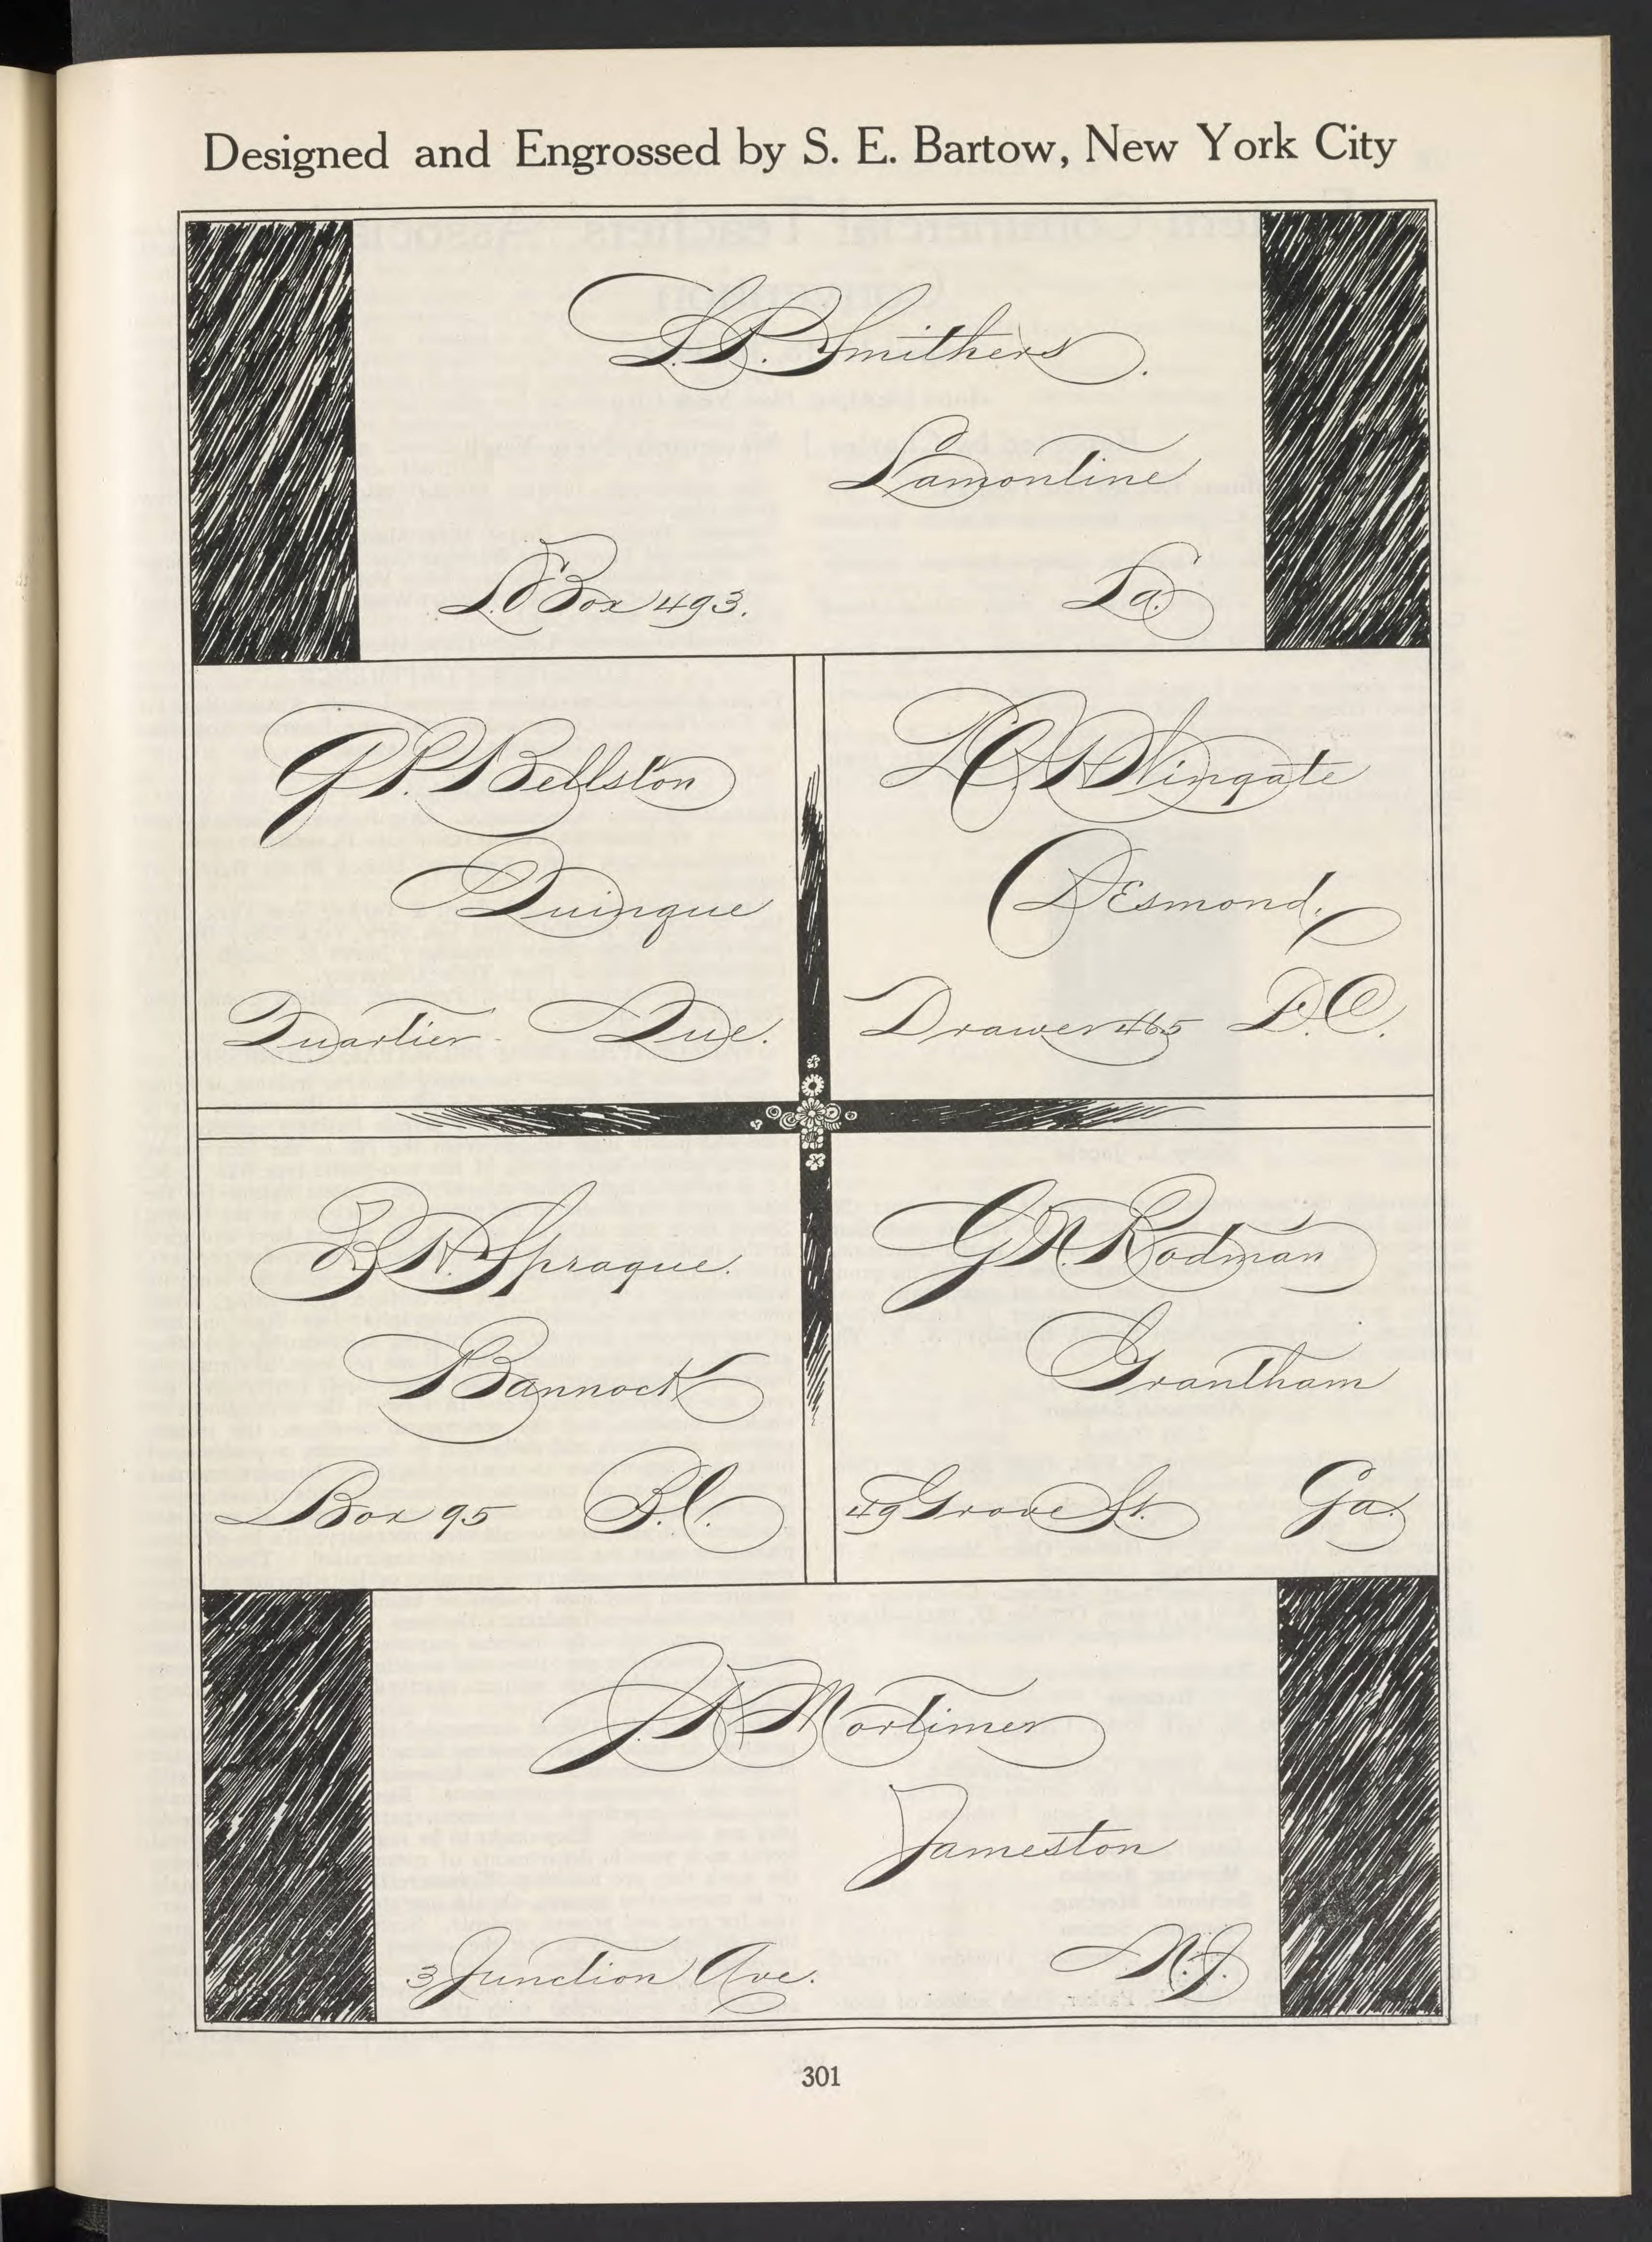 Designed and Engrossed by S. E. Bartow, New York City
L. P. Smithers.
Lamontine
L. Box 493.
La.
G. P. Bellston
Quinque
Quartier Que.
Wingate
Desmond,
Drawer 465 D.C.
N. Sprague.
Bannock
Box 95 B.C.
G. N. Rodman
Grantham
49 Grove St. Ga.
Mortimer
Jameston
3 Junction Ave.
N.J.
301